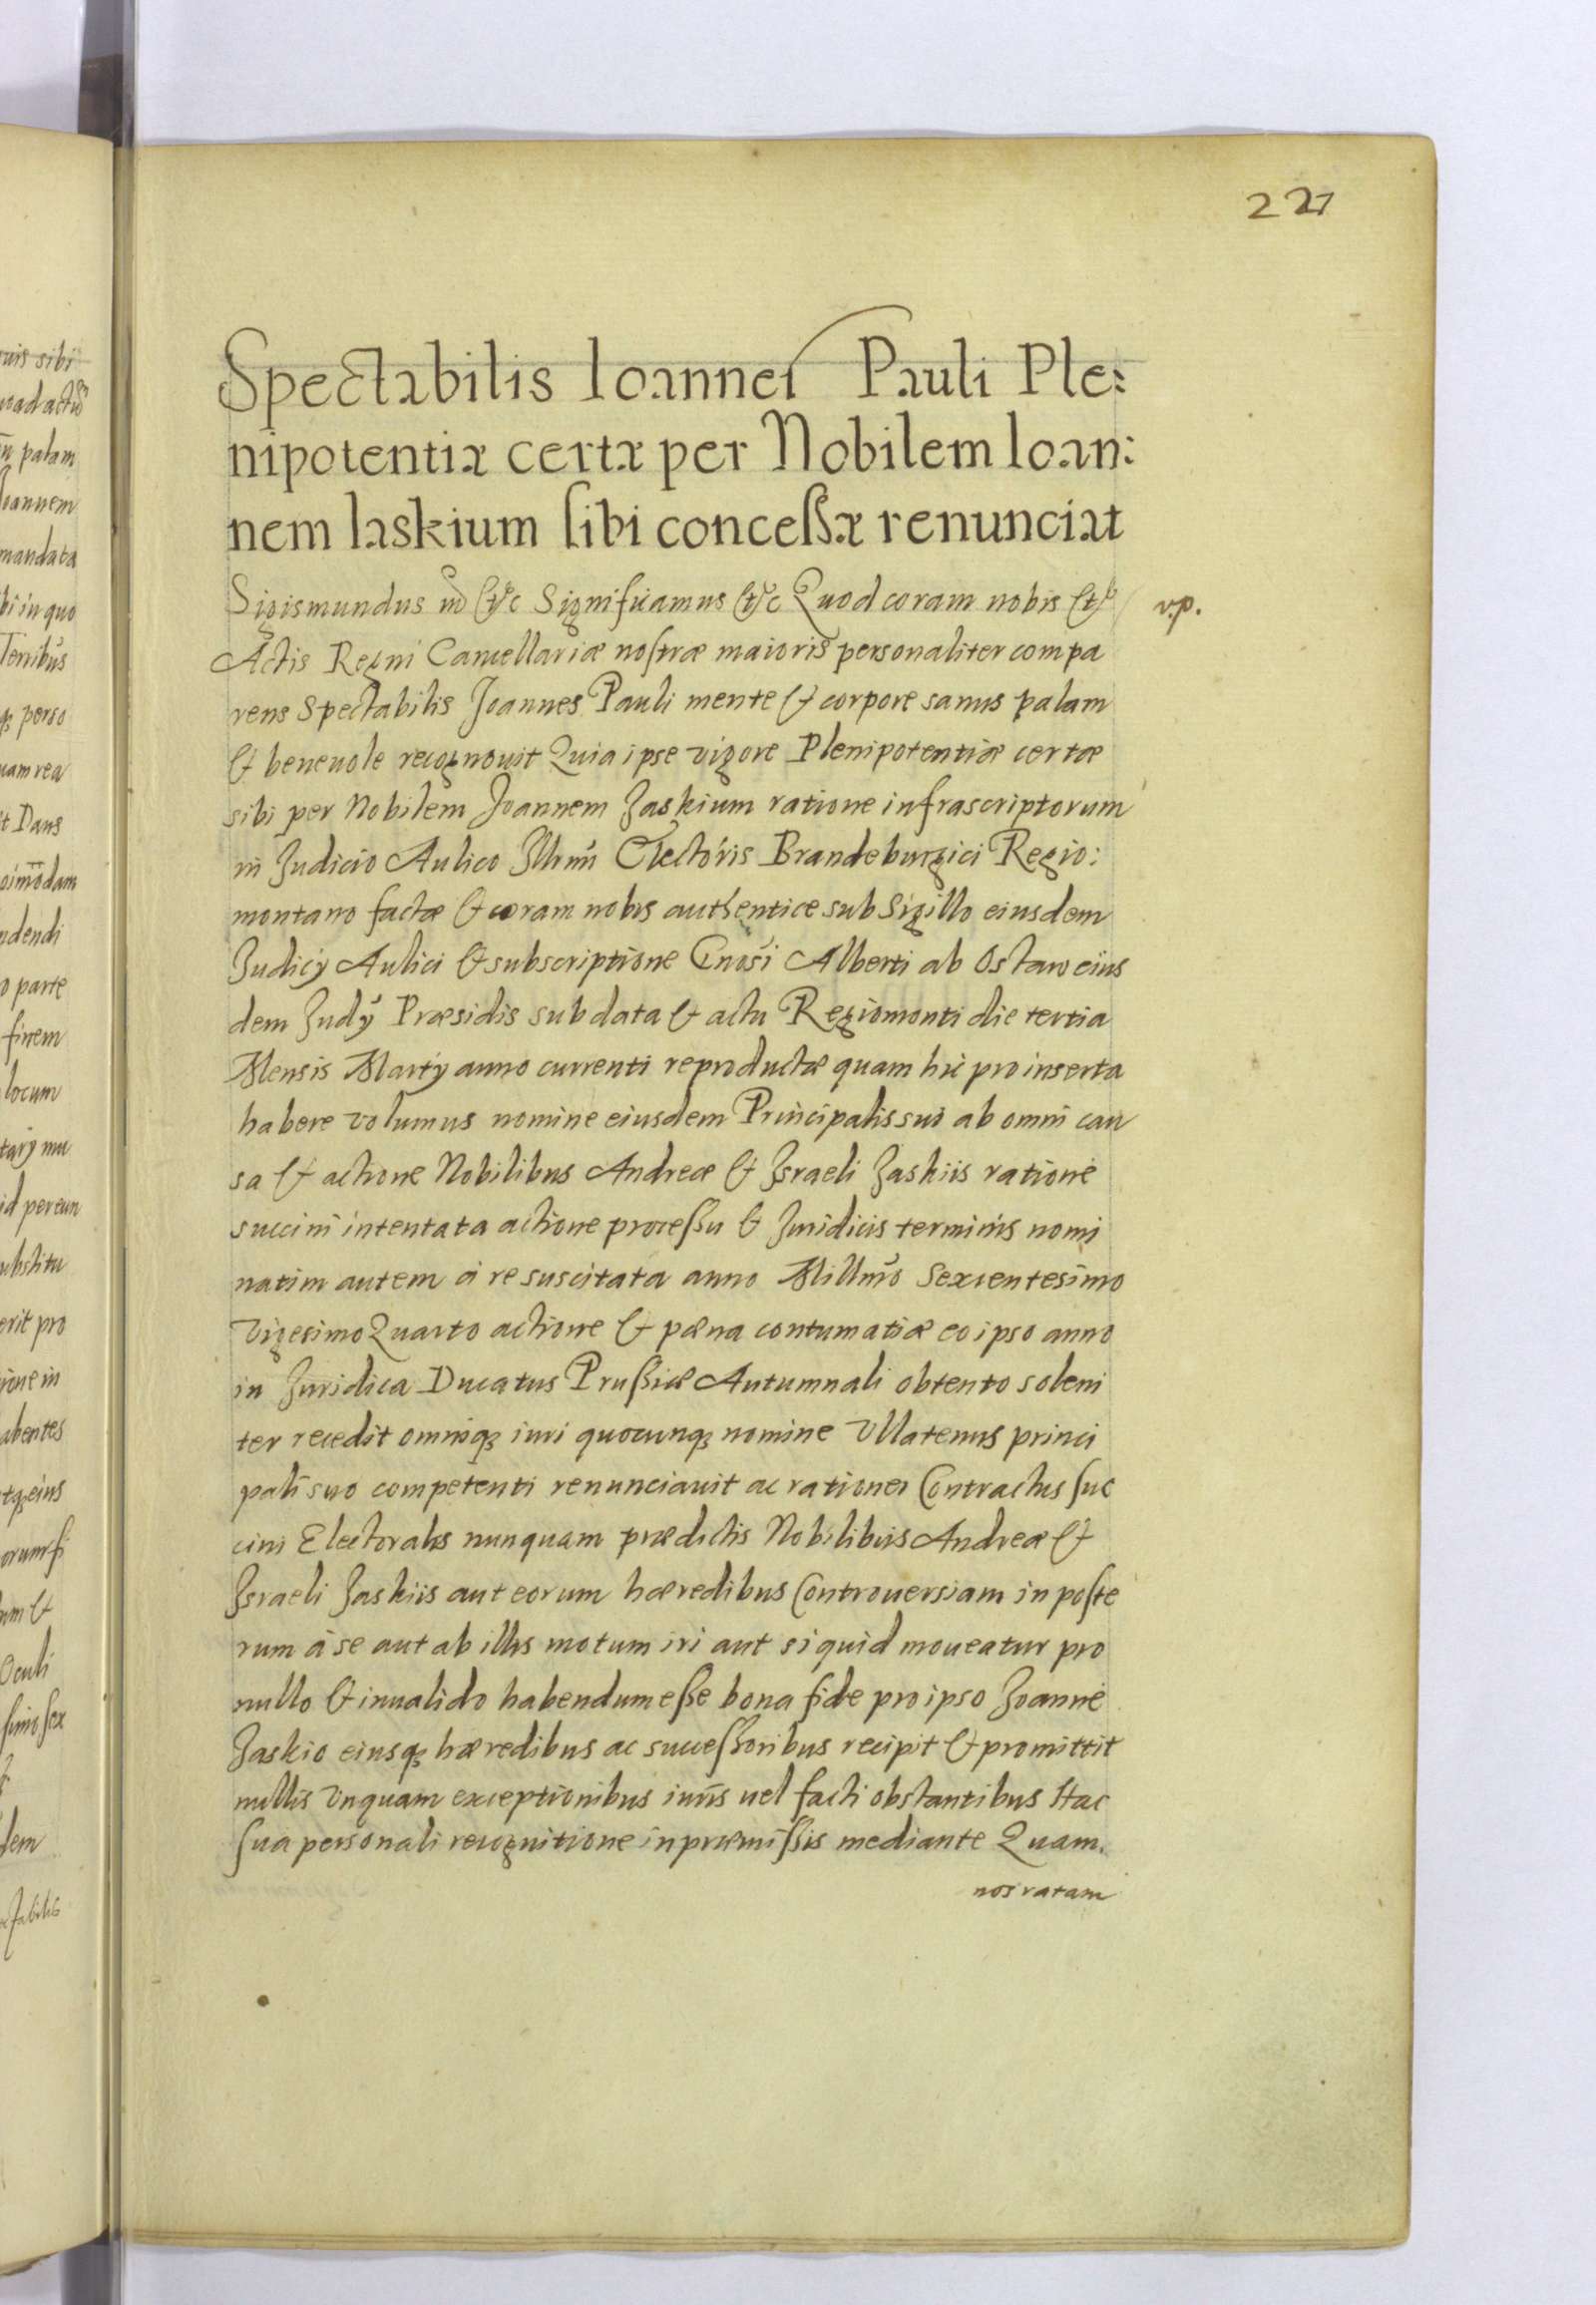 221
Spectabilis Ioannes Pauli Ple:
nipotentiæ certæ per Nobilem Ioan:
nem Iaskium sibi concessæ renunciat
Sigismundus &c Significamus &c Quod coram nobis et
v.p.
Actis Regni Cancellariæ nostræ maioris personaliter compa
rens Spectabilis Joannes Pauli mente et corpore sanus palam
et beneuole recognouit Quia ipse vigore Plenipotentiæ certæ
sibi per Nobilem Joannem Jaskium ratione infrascriptorum
in Judicio Aulico Illmi Electoris Brandeburgici Regio:
montano factæ et coram nobis authentice sub Sigillo eiusdem
Judicij Aulici et subscriptione Gnosi Alberti ab Ostaw eius
dem Judij Præsidis sub data et actu Regiomonti die tertia
Mensis Martij anno currenti reproductæ quam hic pro inserta
habere volumus nomine eiusdem Principalis sui ab omni cau
sa et actione Nobilibus Andreæ et Israeli Jaskiis ratione
succini intentata actione processu et Juridicis terminis nomi
natim autem à resuscitata anno Millmo Sexcentesimo
Vigesimo Quarto actione et pæna contumatiæ eo ipso anno
in Juridica Ducatus Prussiæ Autumnali obtento soleni
ter recedit omniq₃ iuri quocunq₃ nomine Vllatenus princi
pali suo competenti renunciauit ac rationes Contractus suc
cini Electoralis nunquam prædictis Nobilibus Andreæ et
Israeli Jaskiis aut eorum hæredibus Controuersiam in poste
rum à se aut ab illis motum iri aut si quid moueatur pro
nullo et inualido habendum esse bona fide pro ipso Joanne
Jaskio eiusq₃ hæredibus ac successoribus recipit et promittit
nullis vnquam exceptionibus iuris uel facti obstantibus Hac
sua personali recognitione in præmissis mediante Quam.
nos ratam